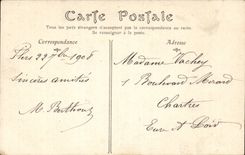 Carte Postale
Tous les pays étrangers n'acceptent pas la correspondance au recto.
Se renseigner à la poste.
Correspondance
Adresse
22 7bre 1908
Sincères amitiés
M Berthou
Madame Vachey
1 Boulevard
Chartres
Eure & Loir